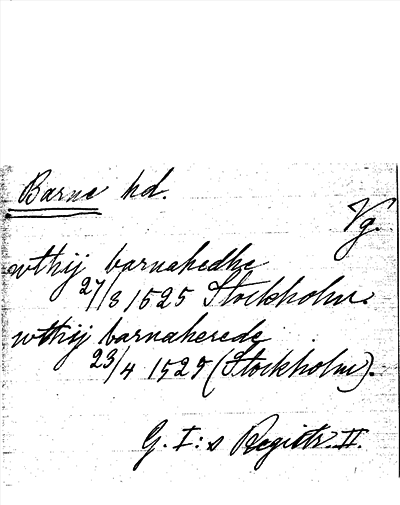 Barne hd.
Vg.
wthij barnahedhe
27/8 1525 Stockholm.
wthij barnaherede
23/4 1525 (Stockholm).
G. I:s Registr. II.